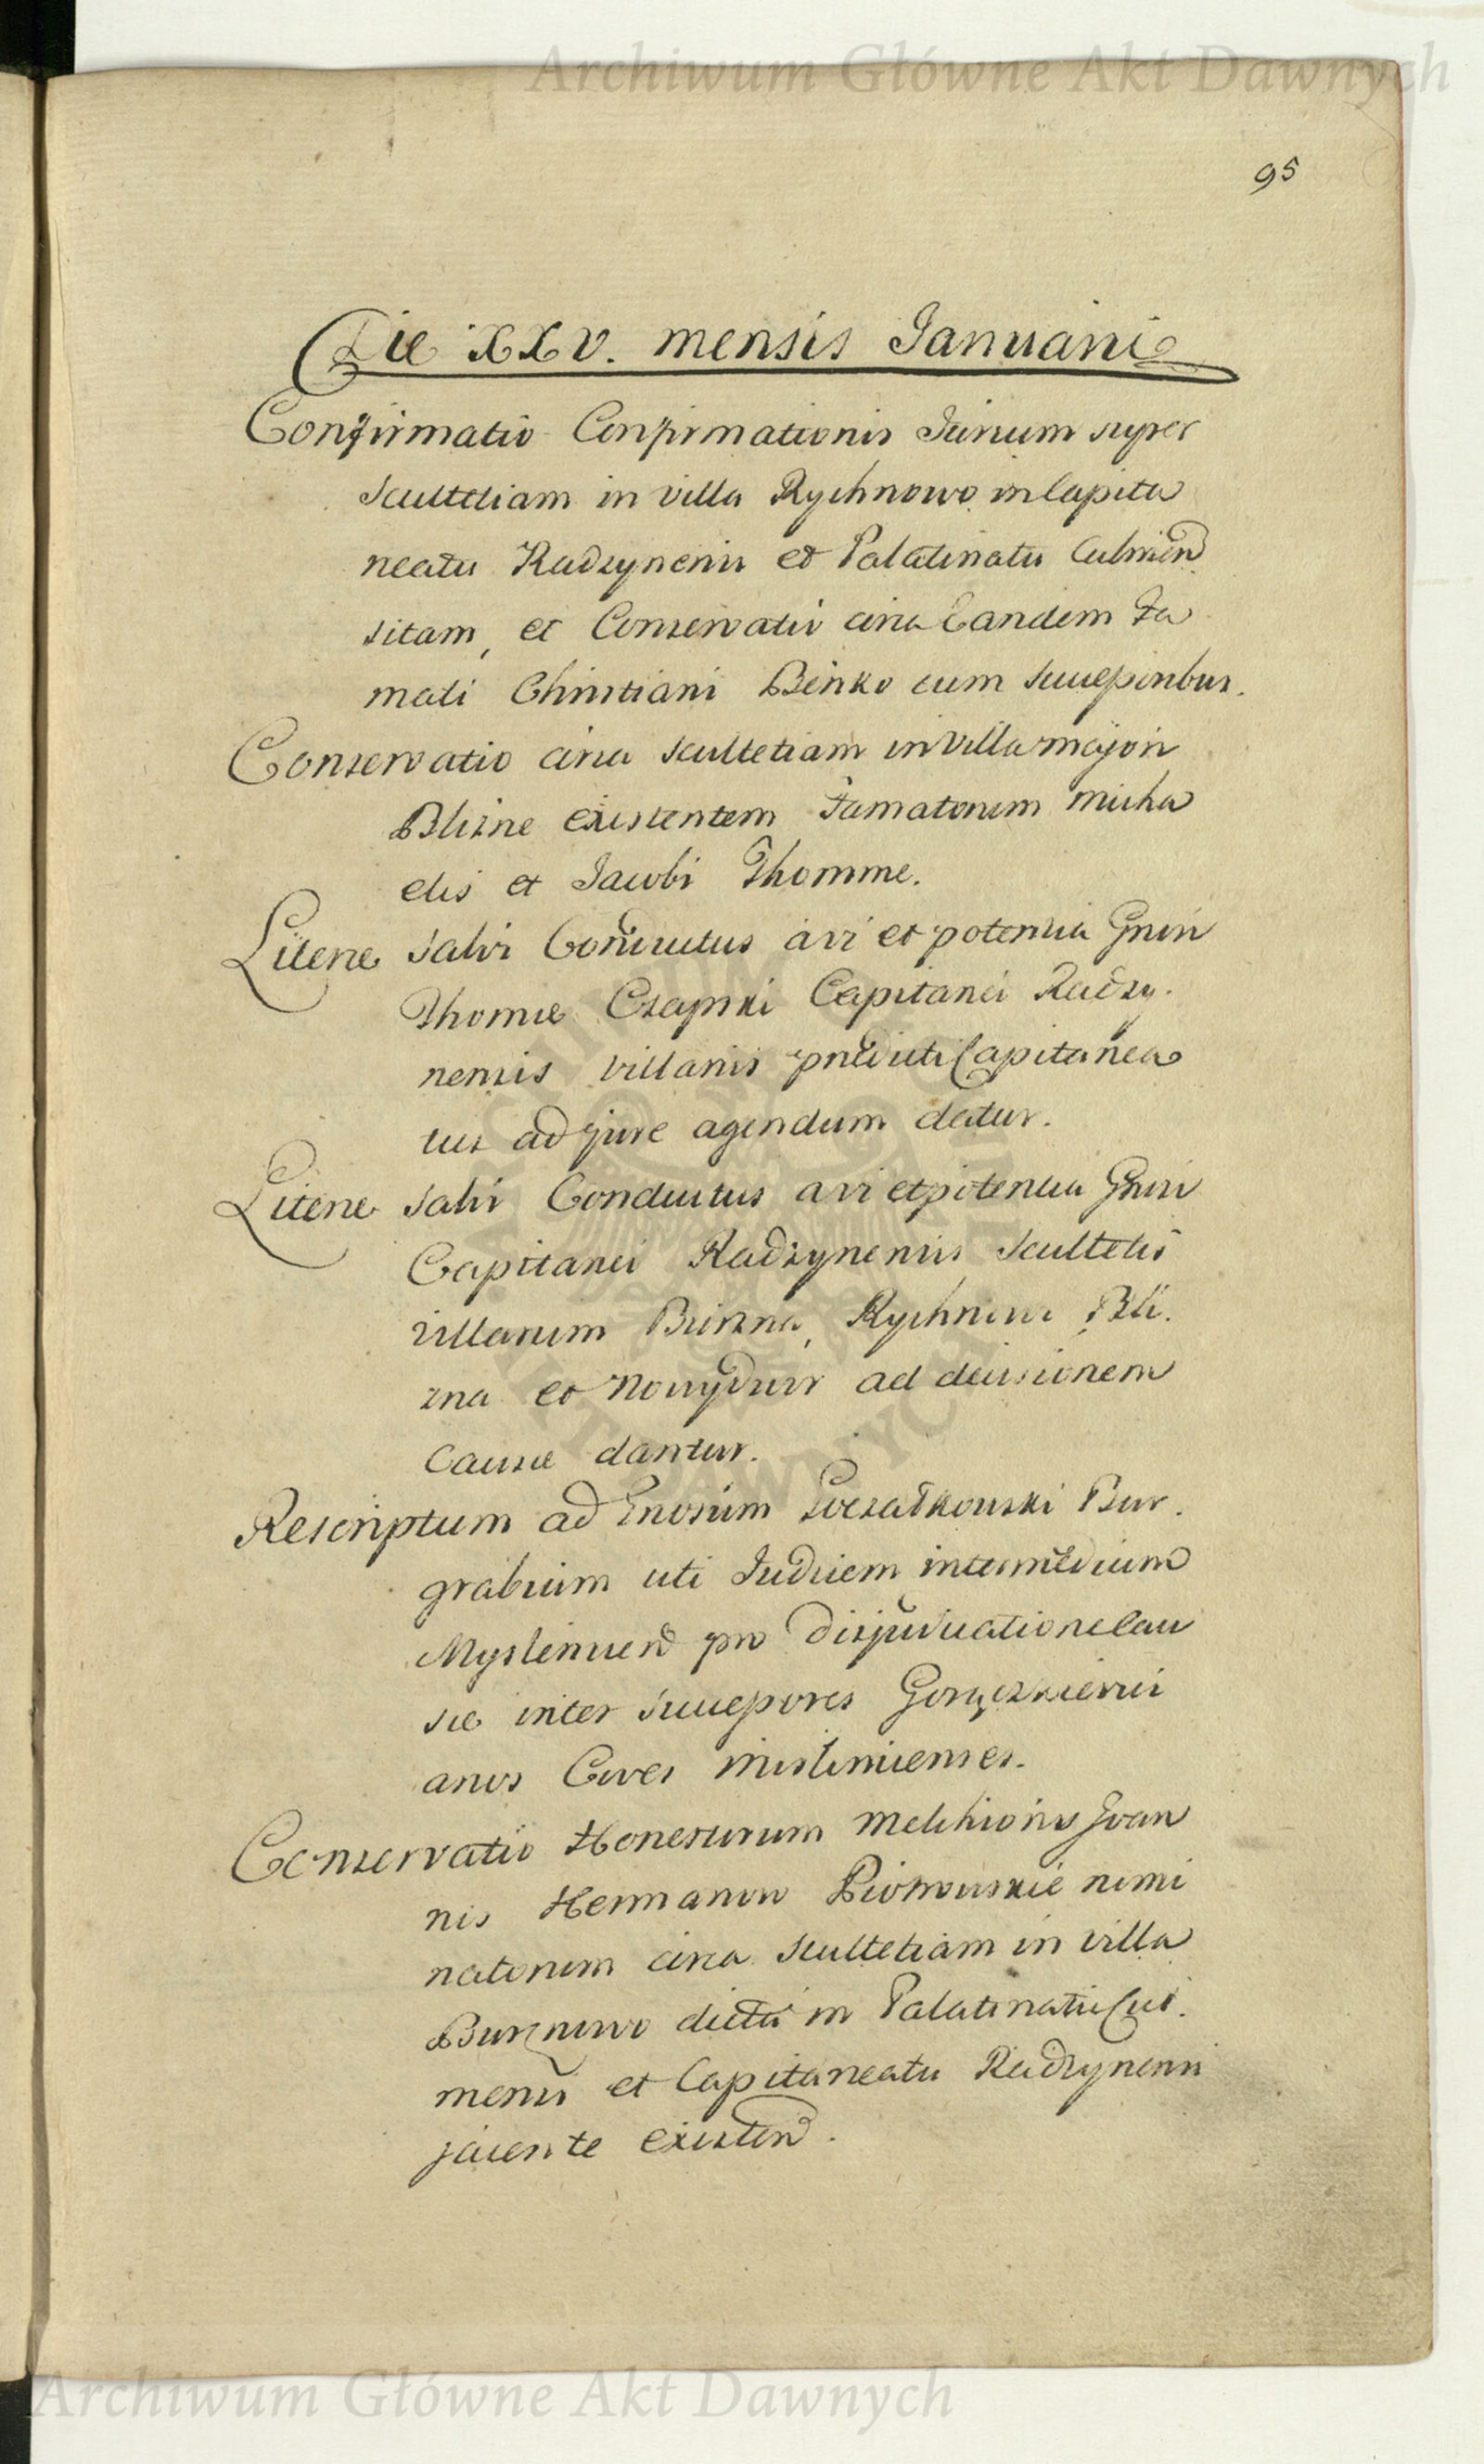 Archiwum Główne Akt Dawnych
95
Die XXV. mensis Januarii
Confirmatio Confirmationis Jurium super
Scultetiam in villa Rychnowo in Capita
neatu Radzynensi et Palatinatu Culmen
sitam, et Conservatio circa Eandem Fa
mati Christiani Benko cum Successoribus.
Conservatio circa Scultetiam in Villa majori
Blizne existentem Famatorum Micha
elis et Jacobi Thomme.
Literæ Salvi Conductus a vi et potentia Gnsi
Thomæ Czapski Capitanei Radzy.
nensis villanis prædicti Capitanea
tus ad jure agendum datur.
Literæ Salvi Conductus a vi et potentia Gnsi
Capitanei Radzynensis Scultetis
villarum Buczna, Rychnowo Bli.
zna et Nowydwor ad decisionem
Causæ dantur.
Rescriptum ad Gnosum Bur.
grabium uti Judicem intermedium
Myslenicen pro Disjudicatione Cau
sæ inter Successores
anos Cives Mislimicenses.
Conservatio Honestorum Melchioris Joan
nis Hermanow Piotrowskie nomi
natorum circa Scultetiam in villa
dicta in Palatinatu Cul.
mensi et Capitaneatu Radzynensi
jacente existen.
Archiwum Główne Akt Dawnych